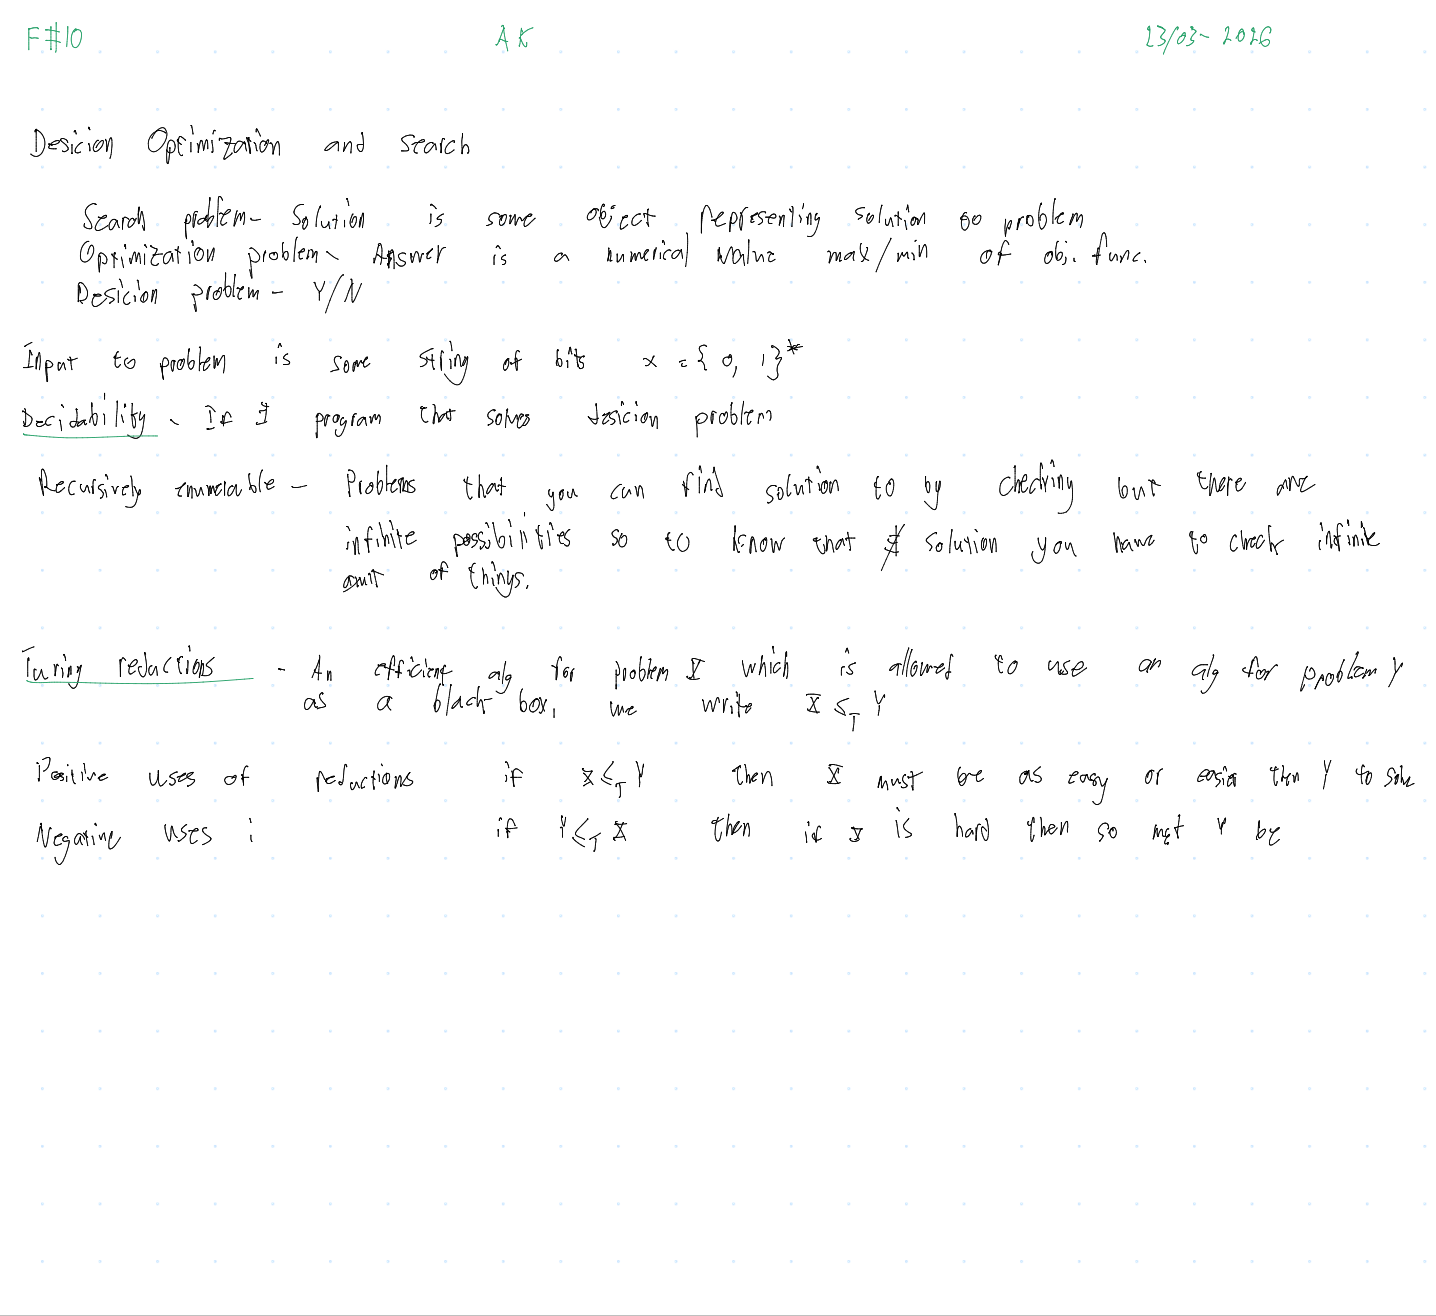 F#10 AK 23/03-2026
Desicion Optimization and search
Search problem - Solution is some object representing solution to problem
Optimization problem - Answer is a numerical value max/min of obj. func.
Desicion problem - Y/N
Input to problem is some string of bits x = {0, 1}*
Decidability - If ∃ program that solves desicion problem
Recursively enumerable - Problems that you can find solution to by checking but there are
infinite possibilities so to know that ∄ solution you have to check infinite
amt of things.
Turing reductions - An efficient alg for problem X which is allowed to use an alg for problem Y
as a black box, we write X ≤_T Y
Positive uses of reductions if X ≤_T Y then X must be as easy or easier then Y to solve
Negative uses : if Y ≤_T X then if X is hard then so must Y be